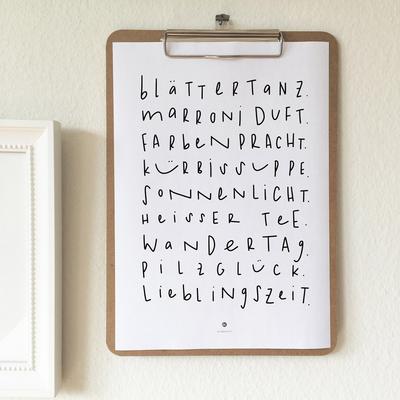 bläTTerTanz.
marroni DUFT.
FarbenPRACHT.
kürbissuppe.
sonnenlicht.
Heisser Tee.
WanderTag.
Pilzglück.
Lieblingszeit.